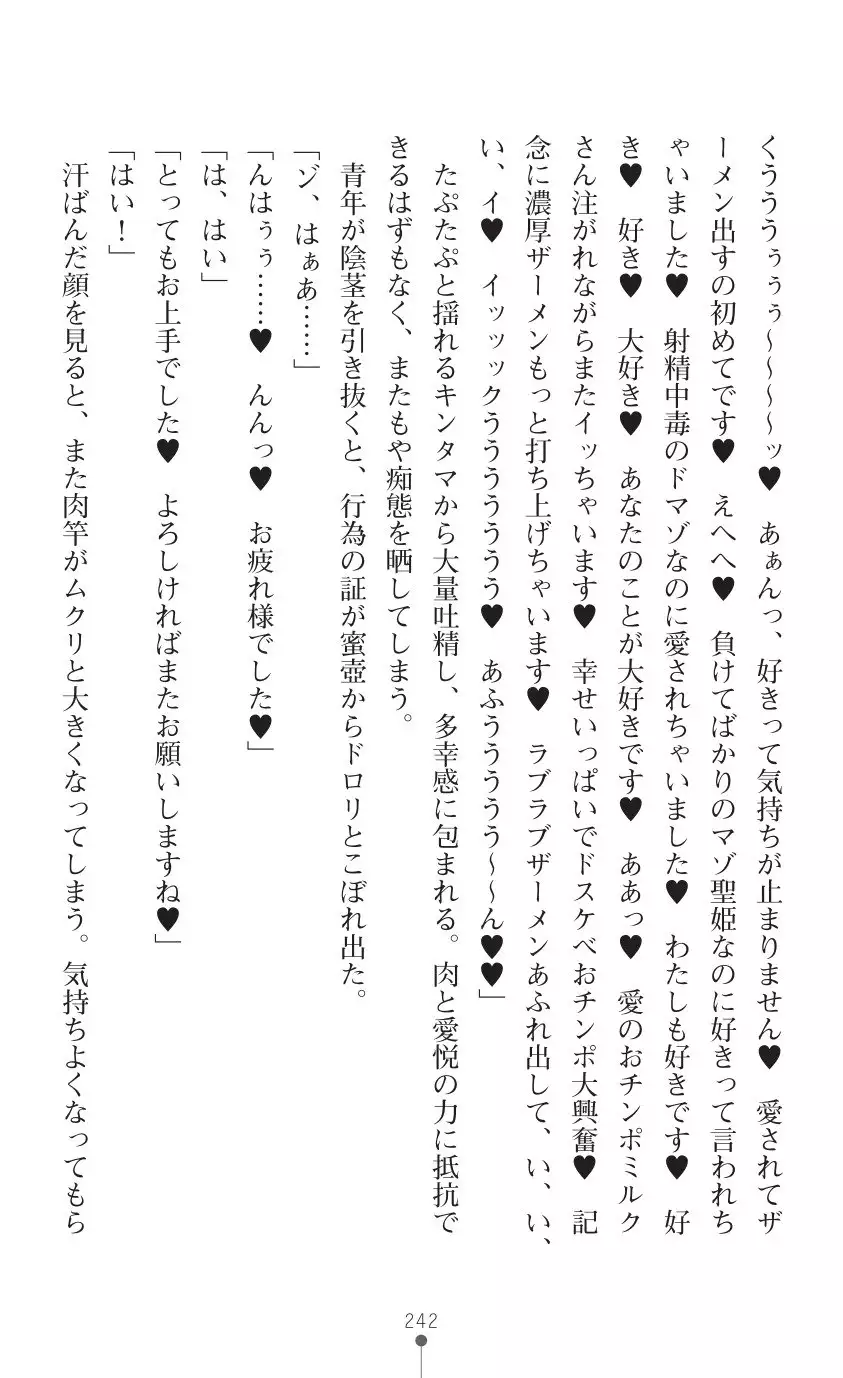 くうううぅぅぅ～～～～ッ♥　あぁんっ、好きって気持ちが止まりません♥　愛されてザ
ーメン出すの初めてです♥　えへへ♥　負けてばかりのマゾ聖姫なのに好きって言われち
ゃいました♥　射精中毒のドマゾなのに愛されちゃいました♥　わたしも好きです♥　好
き♥　好き♥　大好き♥　あなたのことが大好きです♥　ああっ♥　愛のおチンポミルク
さん注がれながらまたイッちゃいます♥　幸せいっぱいでドスケベおチンポ大興奮♥　記
念に濃厚ザーメンもっと打ち上げちゃいます♥　ラブラブザーメンあふれ出して、い、い、
い、イ♥　イッックうううううう♥　あふうううう～～ん♥♥」
　たぷたぷと揺れるキンタマから大量吐精し、多幸感に包まれる。肉と愛悦の力に抵抗で
きるはずもなく、またもや痴態を晒してしまう。
　青年が陰茎を引き抜くと、行為の証が蜜壺からドロリとこぼれ出た。
「ゾ、はぁあ……」
「んはぅぅ……♥　んんっ♥　お疲れ様でした♥」
「は、はい」
「とってもお上手でした♥　よろしければまたお願いしますね♥」
「はい！」
　汗ばんだ顔を見ると、また肉竿がムクリと大きくなってしまう。気持ちよくなってもら
242